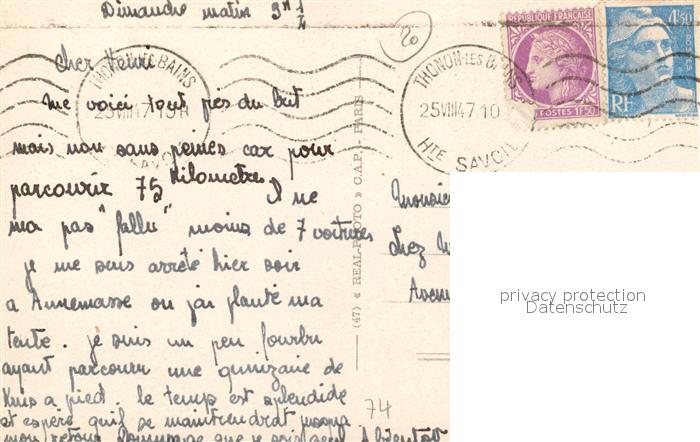 Dimanche matin 9h 1/2
20
RÉPUBLIQUE FRANÇAISE
POSTES 1F50
4F50
RF
THONON-LES-BAINS
25 VIII 47 10
Hte SAVOIE
THONON-LES-BAINS
25 VIII 47 10H
SAVOIE
Cher Henri
me voici tout près du but
mais non sans peines car pour
parcourir 75 kilomètres Il ne
m'a pas "fallu" moins de 7 voitures
je me suis arrêté hier soir
a Annemasse ou j'ai planté ma
tente. je suis un peu fourbu
ayant parcouru une quinzaine de
Kms a pied. le temps est splendide
et espère qu'il se maintiendrat jusqu'a
mon retour Dommage que je sois seul à bientôt
(47) « REAL-PHOTO » C.A.P. - PARIS
Monsieur
Chez
Avenue
74
privacy protection
Datenschutz